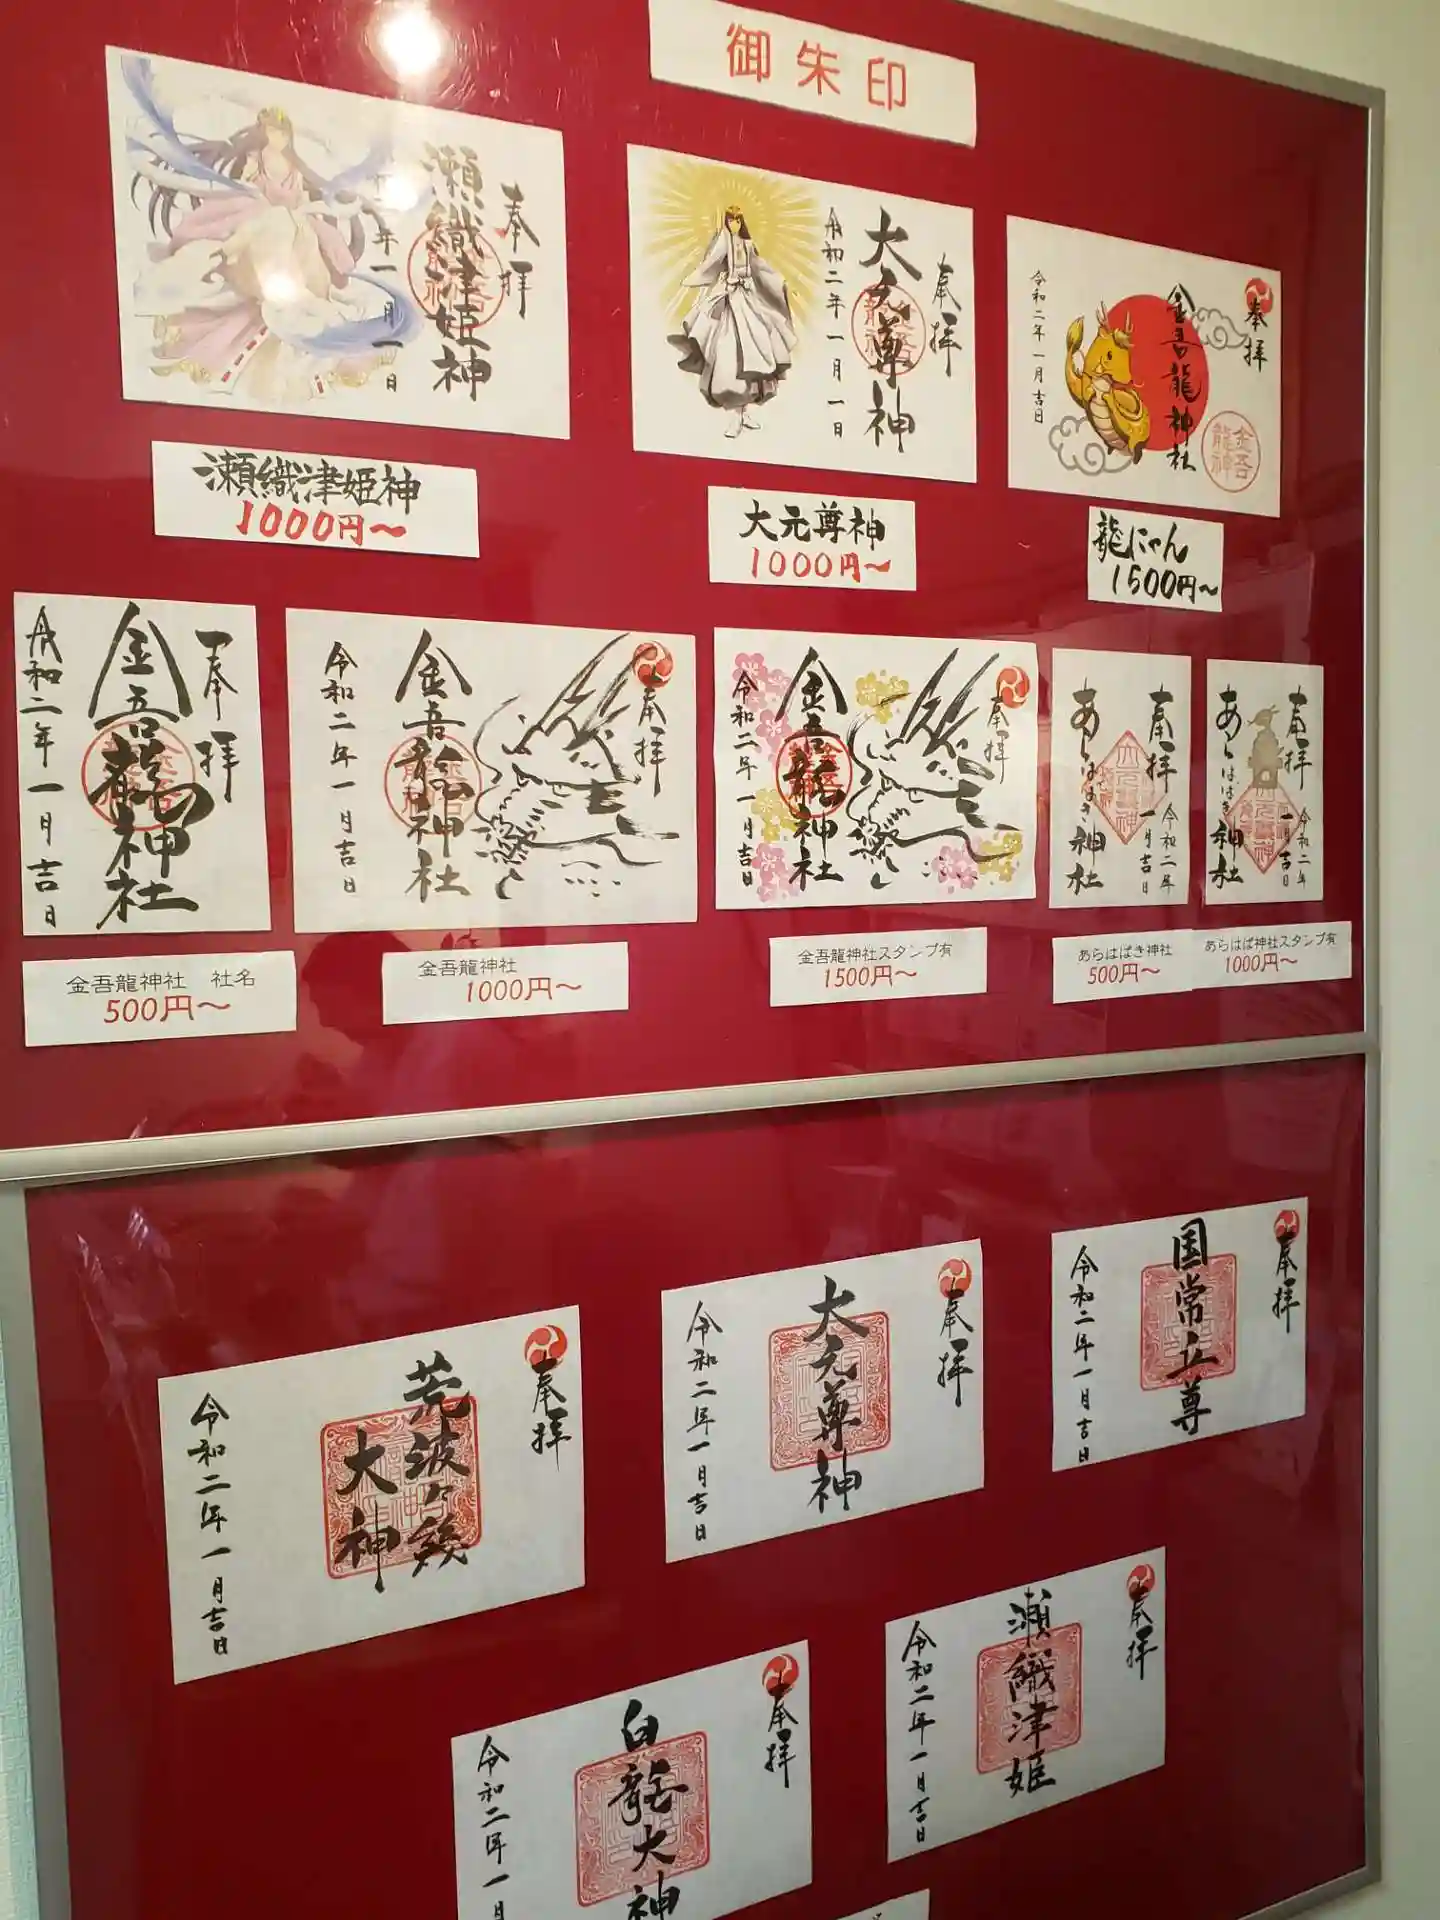 御朱印
奉拝
瀬織津姫神
年一月一日
奉拝
大元尊神
令和二年一月一日
奉拝
金吾龍神社
令和二年一月吉日
金吾龍神
瀬織津姫神
1000円～
大元尊神
1000円～
龍にゃん
1500円～
奉拝
金吾龍神社
令和二年一月吉日
奉拝
金吾龍神社
令和二年一月吉日
奉拝
金吾龍神社
令和二年一月吉日
奉拝
あらはばき神社
令和二年一月吉日
奉拝
あらはばき神社
令和二年一月吉日
金吾龍神社 社名
500円～
金吾龍神社
1000円～
金吾龍神社スタンプ有
1500円～
あらはばき神社
500円～
あらはば神社スタンプ有
1000円～
奉拝
荒波々幾
大神
令和二年一月吉日
奉拝
大元尊神
令和二年一月吉日
奉拝
国常立尊
令和二年一月吉日
奉拝
白龍大神
令和二年一
奉拝
瀬織津姫
令和二年一月吉日